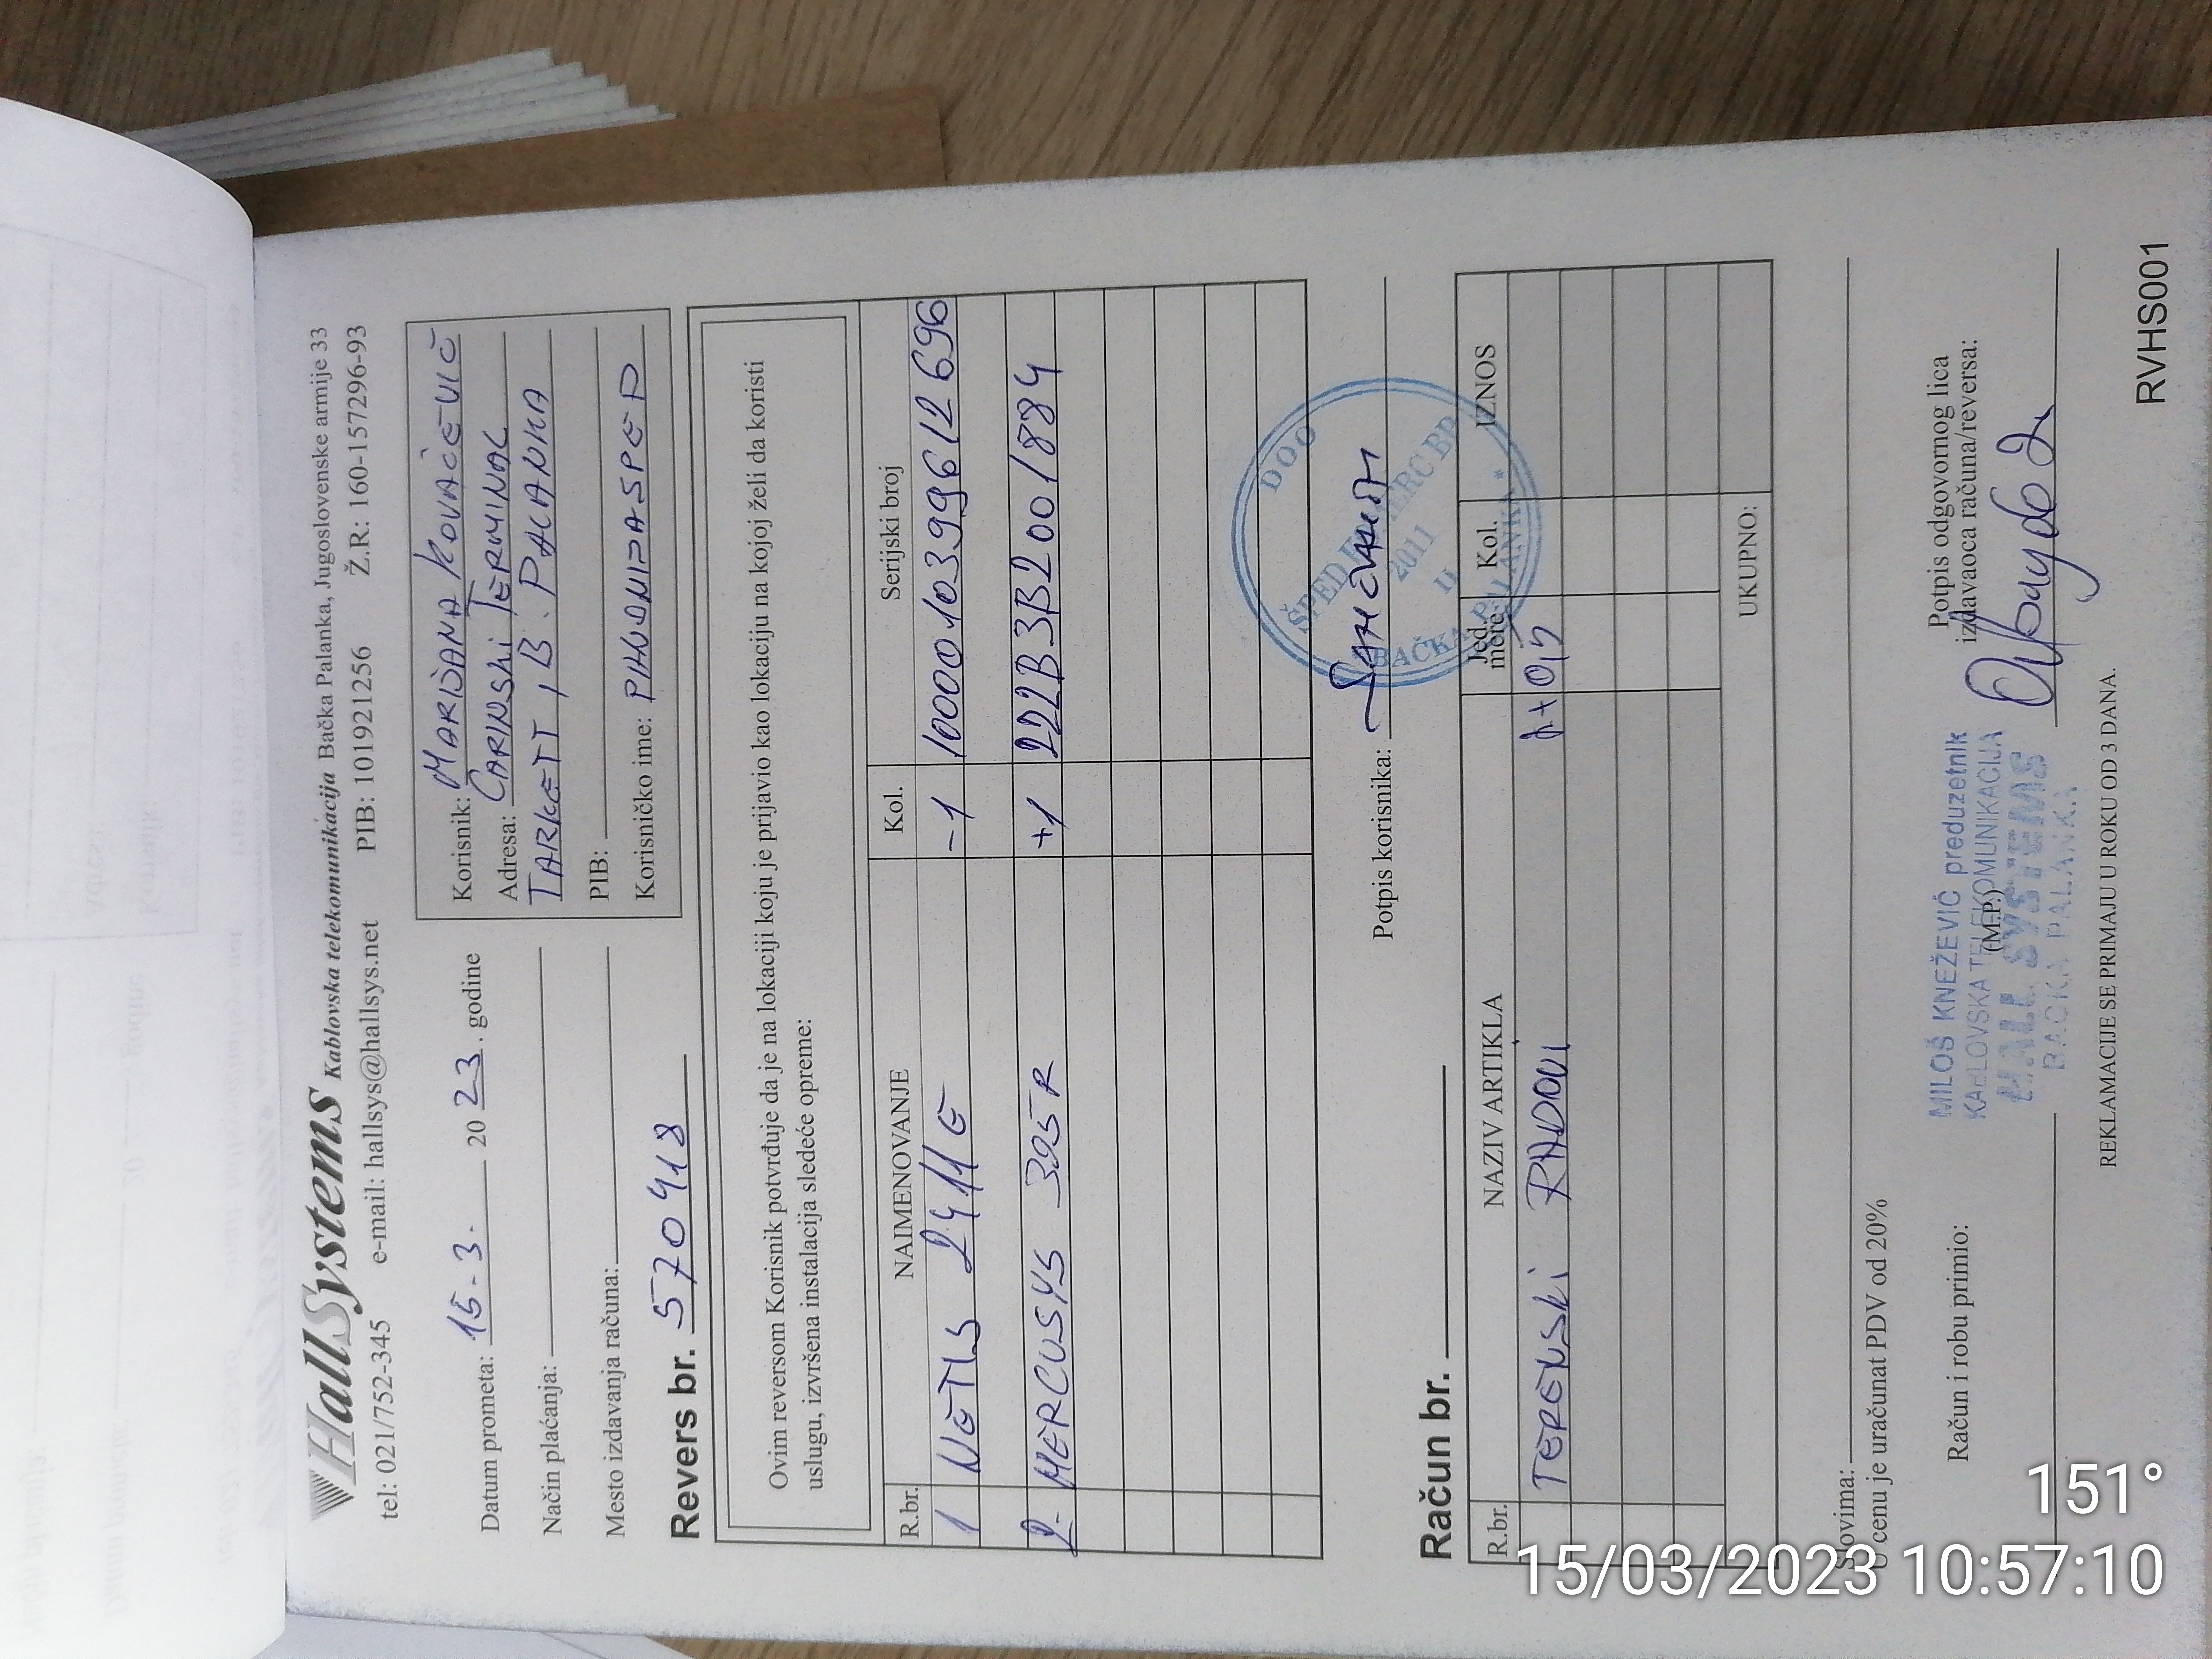 HallSystems Kablovska telekomunikacija Bačka Palanka, Jugoslovenske armije 33
tel: 021/752-345 e-mail: hallsys@hallsys.net PIB: 101921256 Ž.R: 160-157296-93
Datum prometa: 15.3. 2023. godine
Način plaćanja:
Mesto izdavanja računa:
Korisnik: MARIJANA KOVAČEVIĆ
Adresa: CARINSKI TERMINAL
TARKETT, B. PALANKA
PIB:
Korisničko ime:
Revers br. 570418
Ovim reversom Korisnik potvrđuje da je na lokaciji koju je prijavio kao lokaciju na kojoj želi da koristi
uslugu, izvršena instalacija sledeće opreme:
R.br. NAIMENOVANJE Kol. Serijski broj
1 NETIS 2411E -1 1000010399612696
2. MERCUSYS 325R +1 222B3B2001884
Potpis korisnika:
DOO
BAČKA PALANKA *
2011
II
Račun br.
R.br. NAZIV ARTIKLA Jed. mere Kol. IZNOS
TERENSKI RADOVI 1+0,5
UKUPNO:
Slovima:
U cenu je uračunat PDV od 20%
Račun i robu primio:
(M.P.)
MILOŠ KNEŽEVIĆ preduzetnik
KABLOVSKA TELEKOMUNIKACIJA
HALL SYSTEMS
BAČKA PALANKA
Potpis odgovornog lica
izdavaoca računa/reversa:
REKLAMACIJE SE PRIMAJU U ROKU OD 3 DANA.
RVHS001
151°
15/03/2023 10:57:10